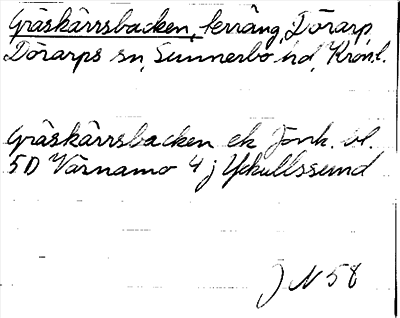 Gräskärrsbacken, terräng, Dörarp,
Dörarps sn, Sunnerbo hd, Kron.l.
Gräskärrsbacken ek Jonk. bl.
5D Värnamo 4 j Yckullssund
J N 58